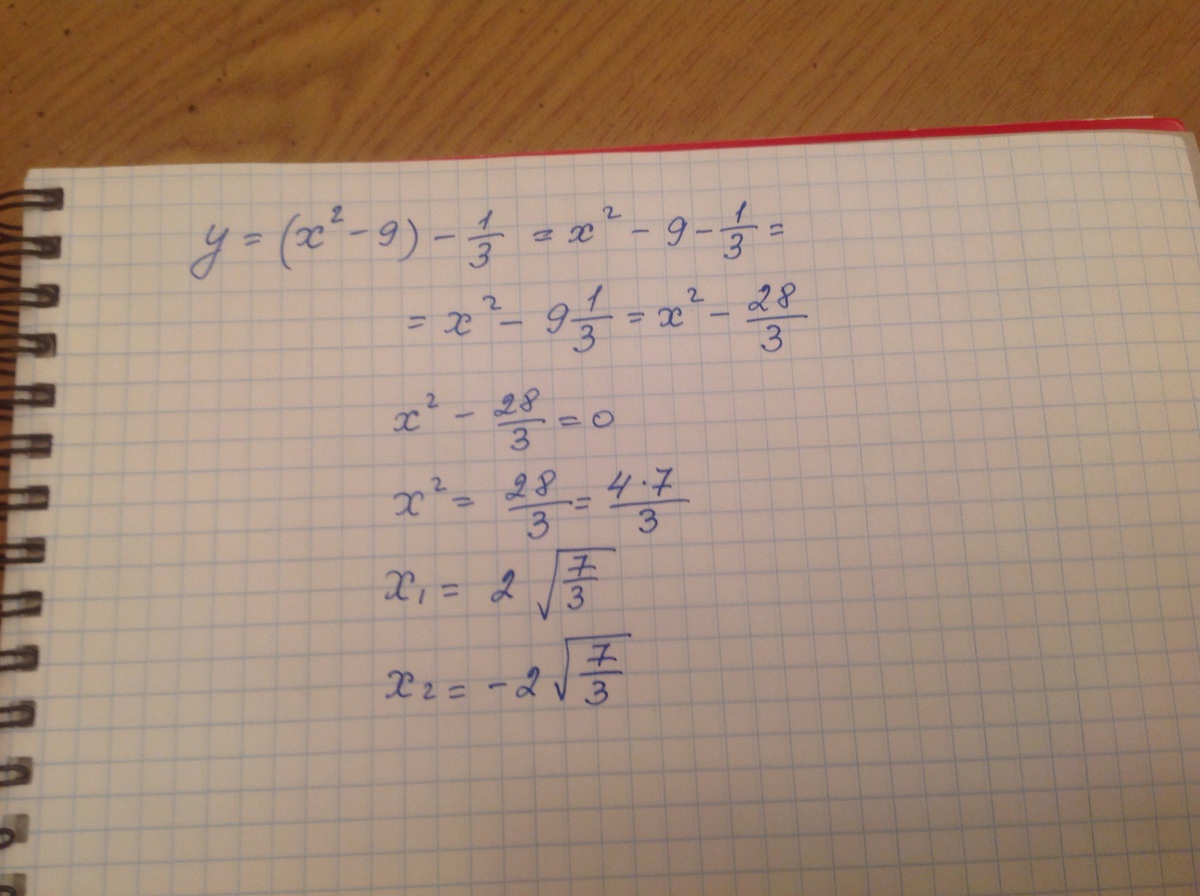 y = (x² - 9) - 1/3 = x² - 9 - 1/3 =
= x² - 9 1/3 = x² - 28/3
x² - 28/3 = 0
x² = 28/3 = 4·7/3
x₁ = 2 √(7/3)
x₂ = -2 √(7/3)